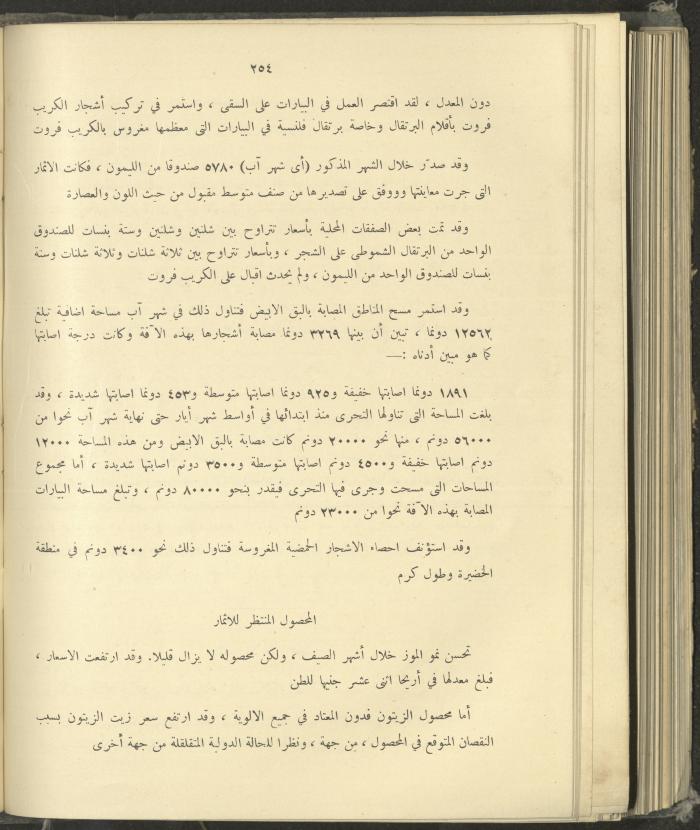 ٢٥٤
دون المعدل ، لقد اقتصر العمل في البيارات على السقى ، واستمر في تركيب أشجار الكريب
فروت بأقلام البرتقال وخاصة برتقال فلنسية في البيارات التى معظمها مغروس بالكريب فروت
وقد صدّر خلال الشهر المذكور (أى شهر آب) ٥٧٨٠ صندوقا من الليمون ، فكانت الاثمار
التى جرت معاينتها وووفق على تصديرها من صنف متوسط مقبول من حيث اللون والعصارة
وقد تمت بعض الصفقات المحلية بأسعار تتراوح بين شلنين وشلنين وستة بنسات للصندوق
الواحد من البرتقال الشموطى على الشجر ، وبأسعار تتراوح بين ثلاثة شلنات وثلاثة شلنات وستة
بنسات للصندوق الواحد من الليمون ، ولم يحدث اقبال على الكريب فروت
وقد استمر مسح المناطق المصابة بالبق الابيض فتناول ذلك في شهر آب مساحة اضافية تبلغ
١٢٥٦٢ دونما ، تبين أن بينها ٣٢٦٩ دونما مصابة أشجارها بهذه الآفة وكانت درجة اصابتها
كما هو مبين أدناه :—
١٨٩١ دونما اصابتها خفيفة و٩٢٥ دونما اصابتها متوسطة و٤٥٣ دونما اصابتها شديدة ، وقد
بلغت المساحة التى تناولها التحرى منذ ابتدائها في أواسط شهر أيار حتى نهاية شهر آب نحوا من
٥٦٠٠٠ دونم ، منها نحو ٢٠٠٠٠ دونم كانت مصابة بالبق الابيض ومن هذه المساحة ١٢٠٠٠
دونم اصابتها خفيفة و٤٥٠٠ دونم اصابتها متوسطة و٣٥٠٠ دونم اصابتها شديدة ، أما مجموع
المساحات التى مسحت وجرى فيها التحرى فيقدر بنحو ٨٠٠٠٠ دونم ، وتبلغ مساحة البيارات
المصابة بهذه الآفة نحوا من ٢٣٠٠٠ دونم
وقد استؤنف احصاء الاشجار الحمضية المغروسة فتناول ذلك نحو ٣٤٠٠ دونم في منطقة
الخضيرة وطول كرم
المحصول المنتظر للاثمار
تحسن نمو الموز خلال أشهر الصيف ، ولكن محصوله لا يزال قليلا. وقد ارتفعت الاسعار ،
فبلغ معدلها في أريحا اثنى عشر جنيها للطن
أما محصول الزيتون فدون المعتاد في جميع الالوية ، وقد ارتفع سعر زيت الزيتون بسبب
النقصان المتوقع في المحصول ، من جهة ، ونظرا للحالة الدولية المتقلقلة من جهة أخرى